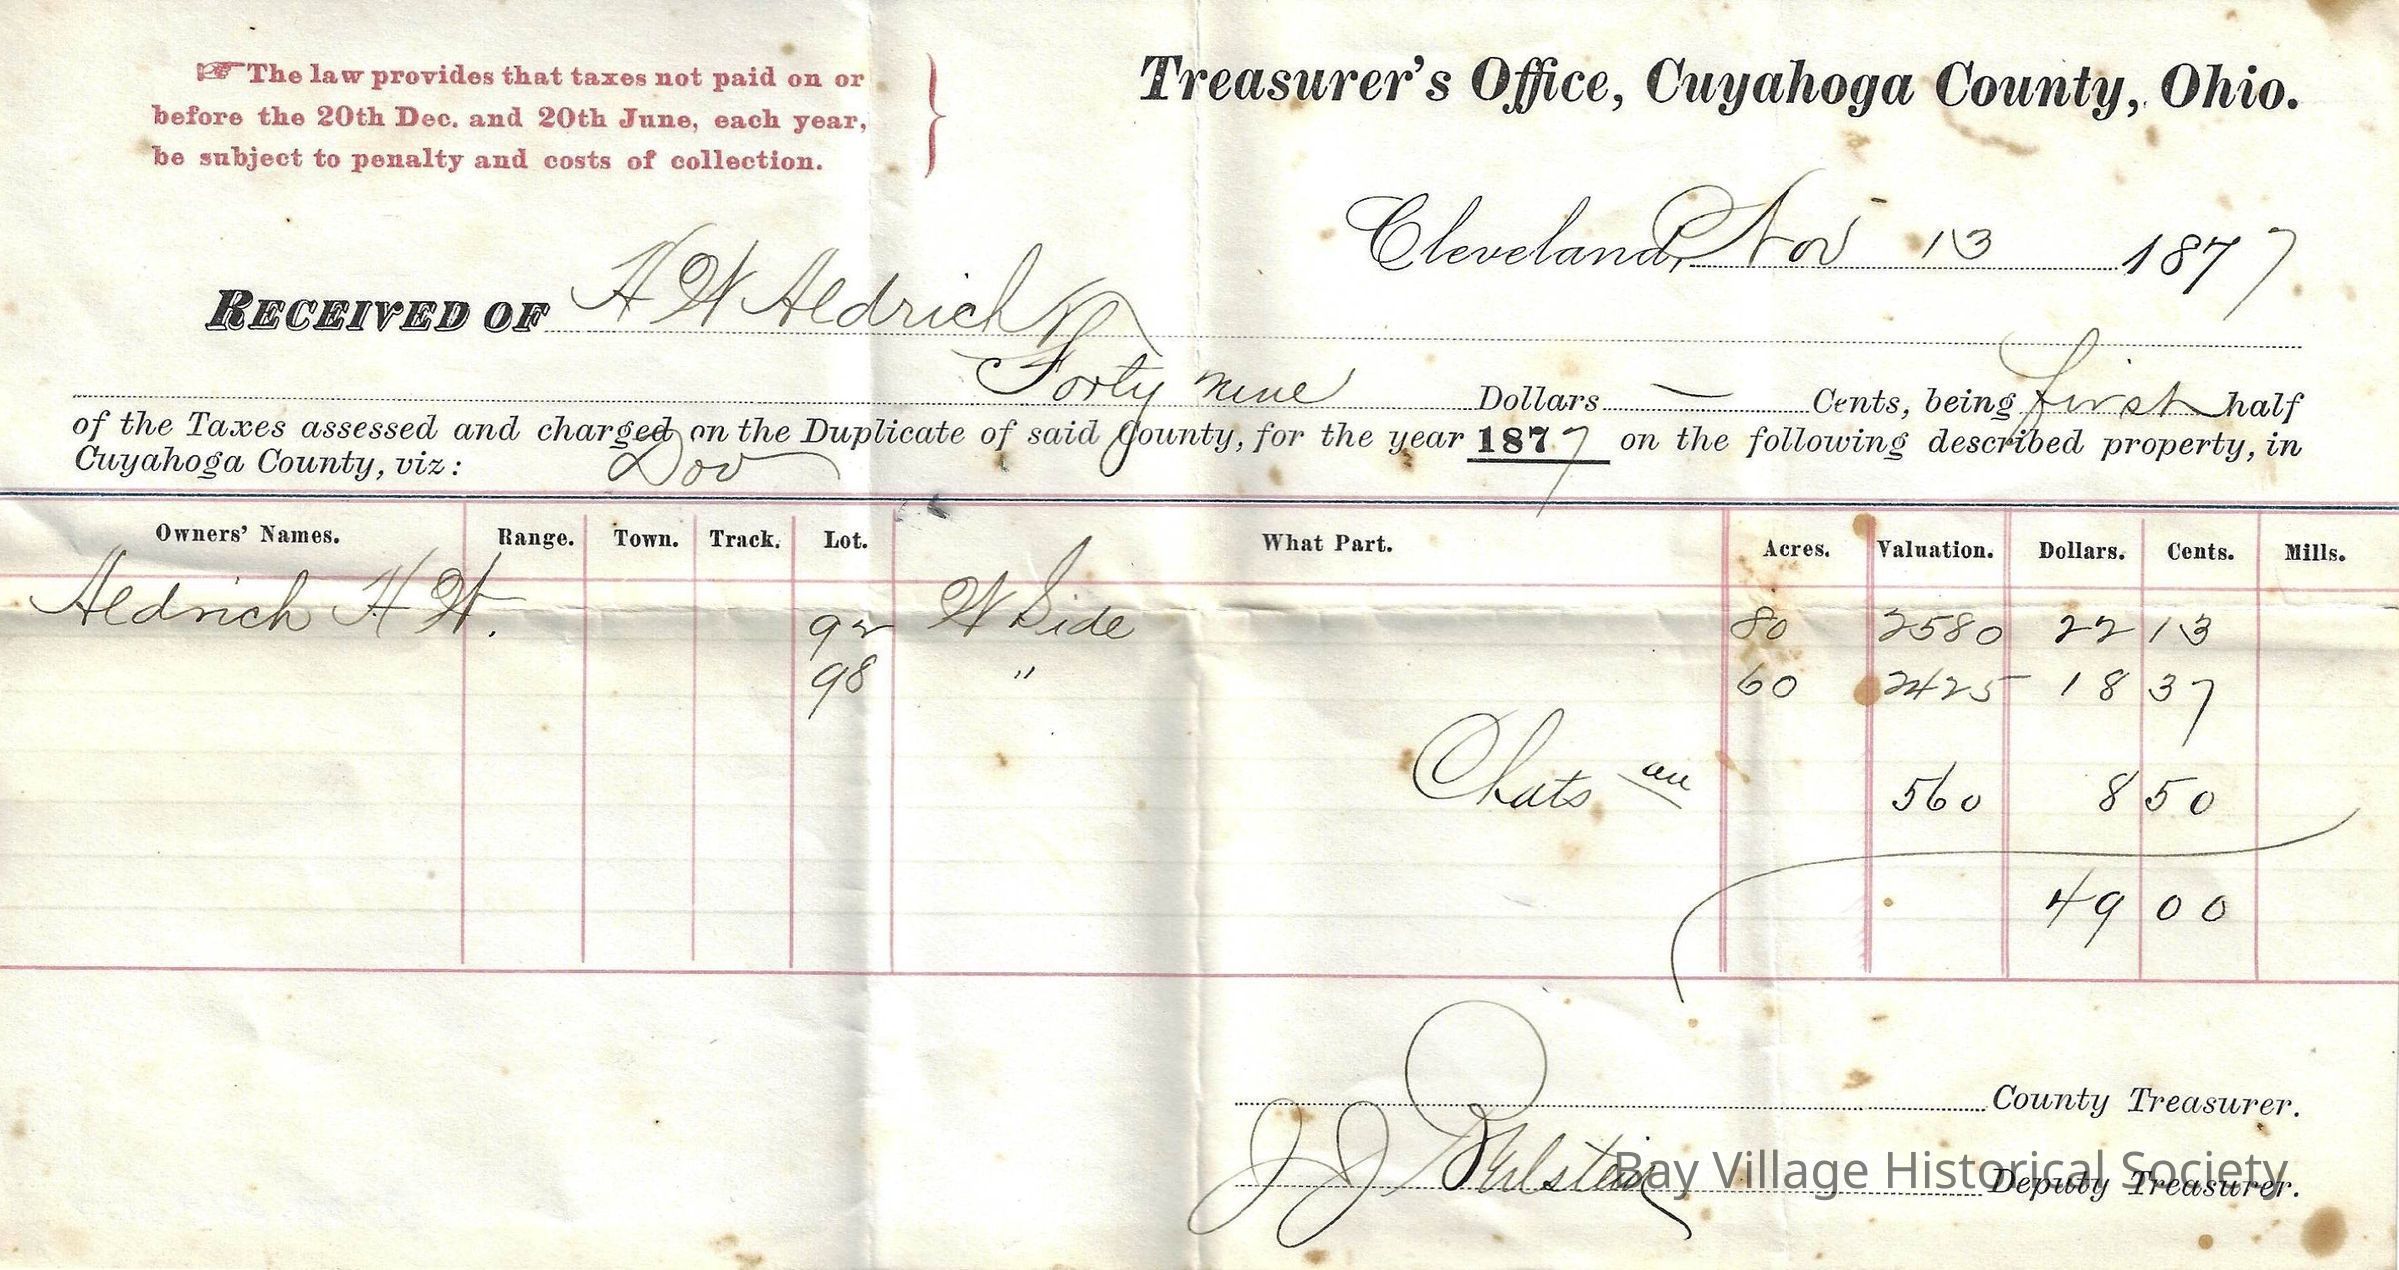 ☞ The law provides that taxes not paid on or
before the 20th Dec. and 20th June, each year,
be subject to penalty and costs of collection.
Treasurer's Office, Cuyahoga County, Ohio.
Cleveland, Nov 13 1877
RECEIVED OF H W Aldrich
Forty nine Dollars — Cents, being first half
of the Taxes assessed and charged on the Duplicate of said County, for the year 1877 on the following described property, in
Cuyahoga County, viz: Dov
Owners' Names. Range. Town. Track. Lot. What Part. Acres. Valuation. Dollars. Cents. Mills.
Aldrich H W. 92 W Side 80 2580 22 13
98 " 60 2425 18 37
Chats 560 8 50
49 00
County Treasurer.
J J
Bay Village Historical Society
Deputy Treasurer.